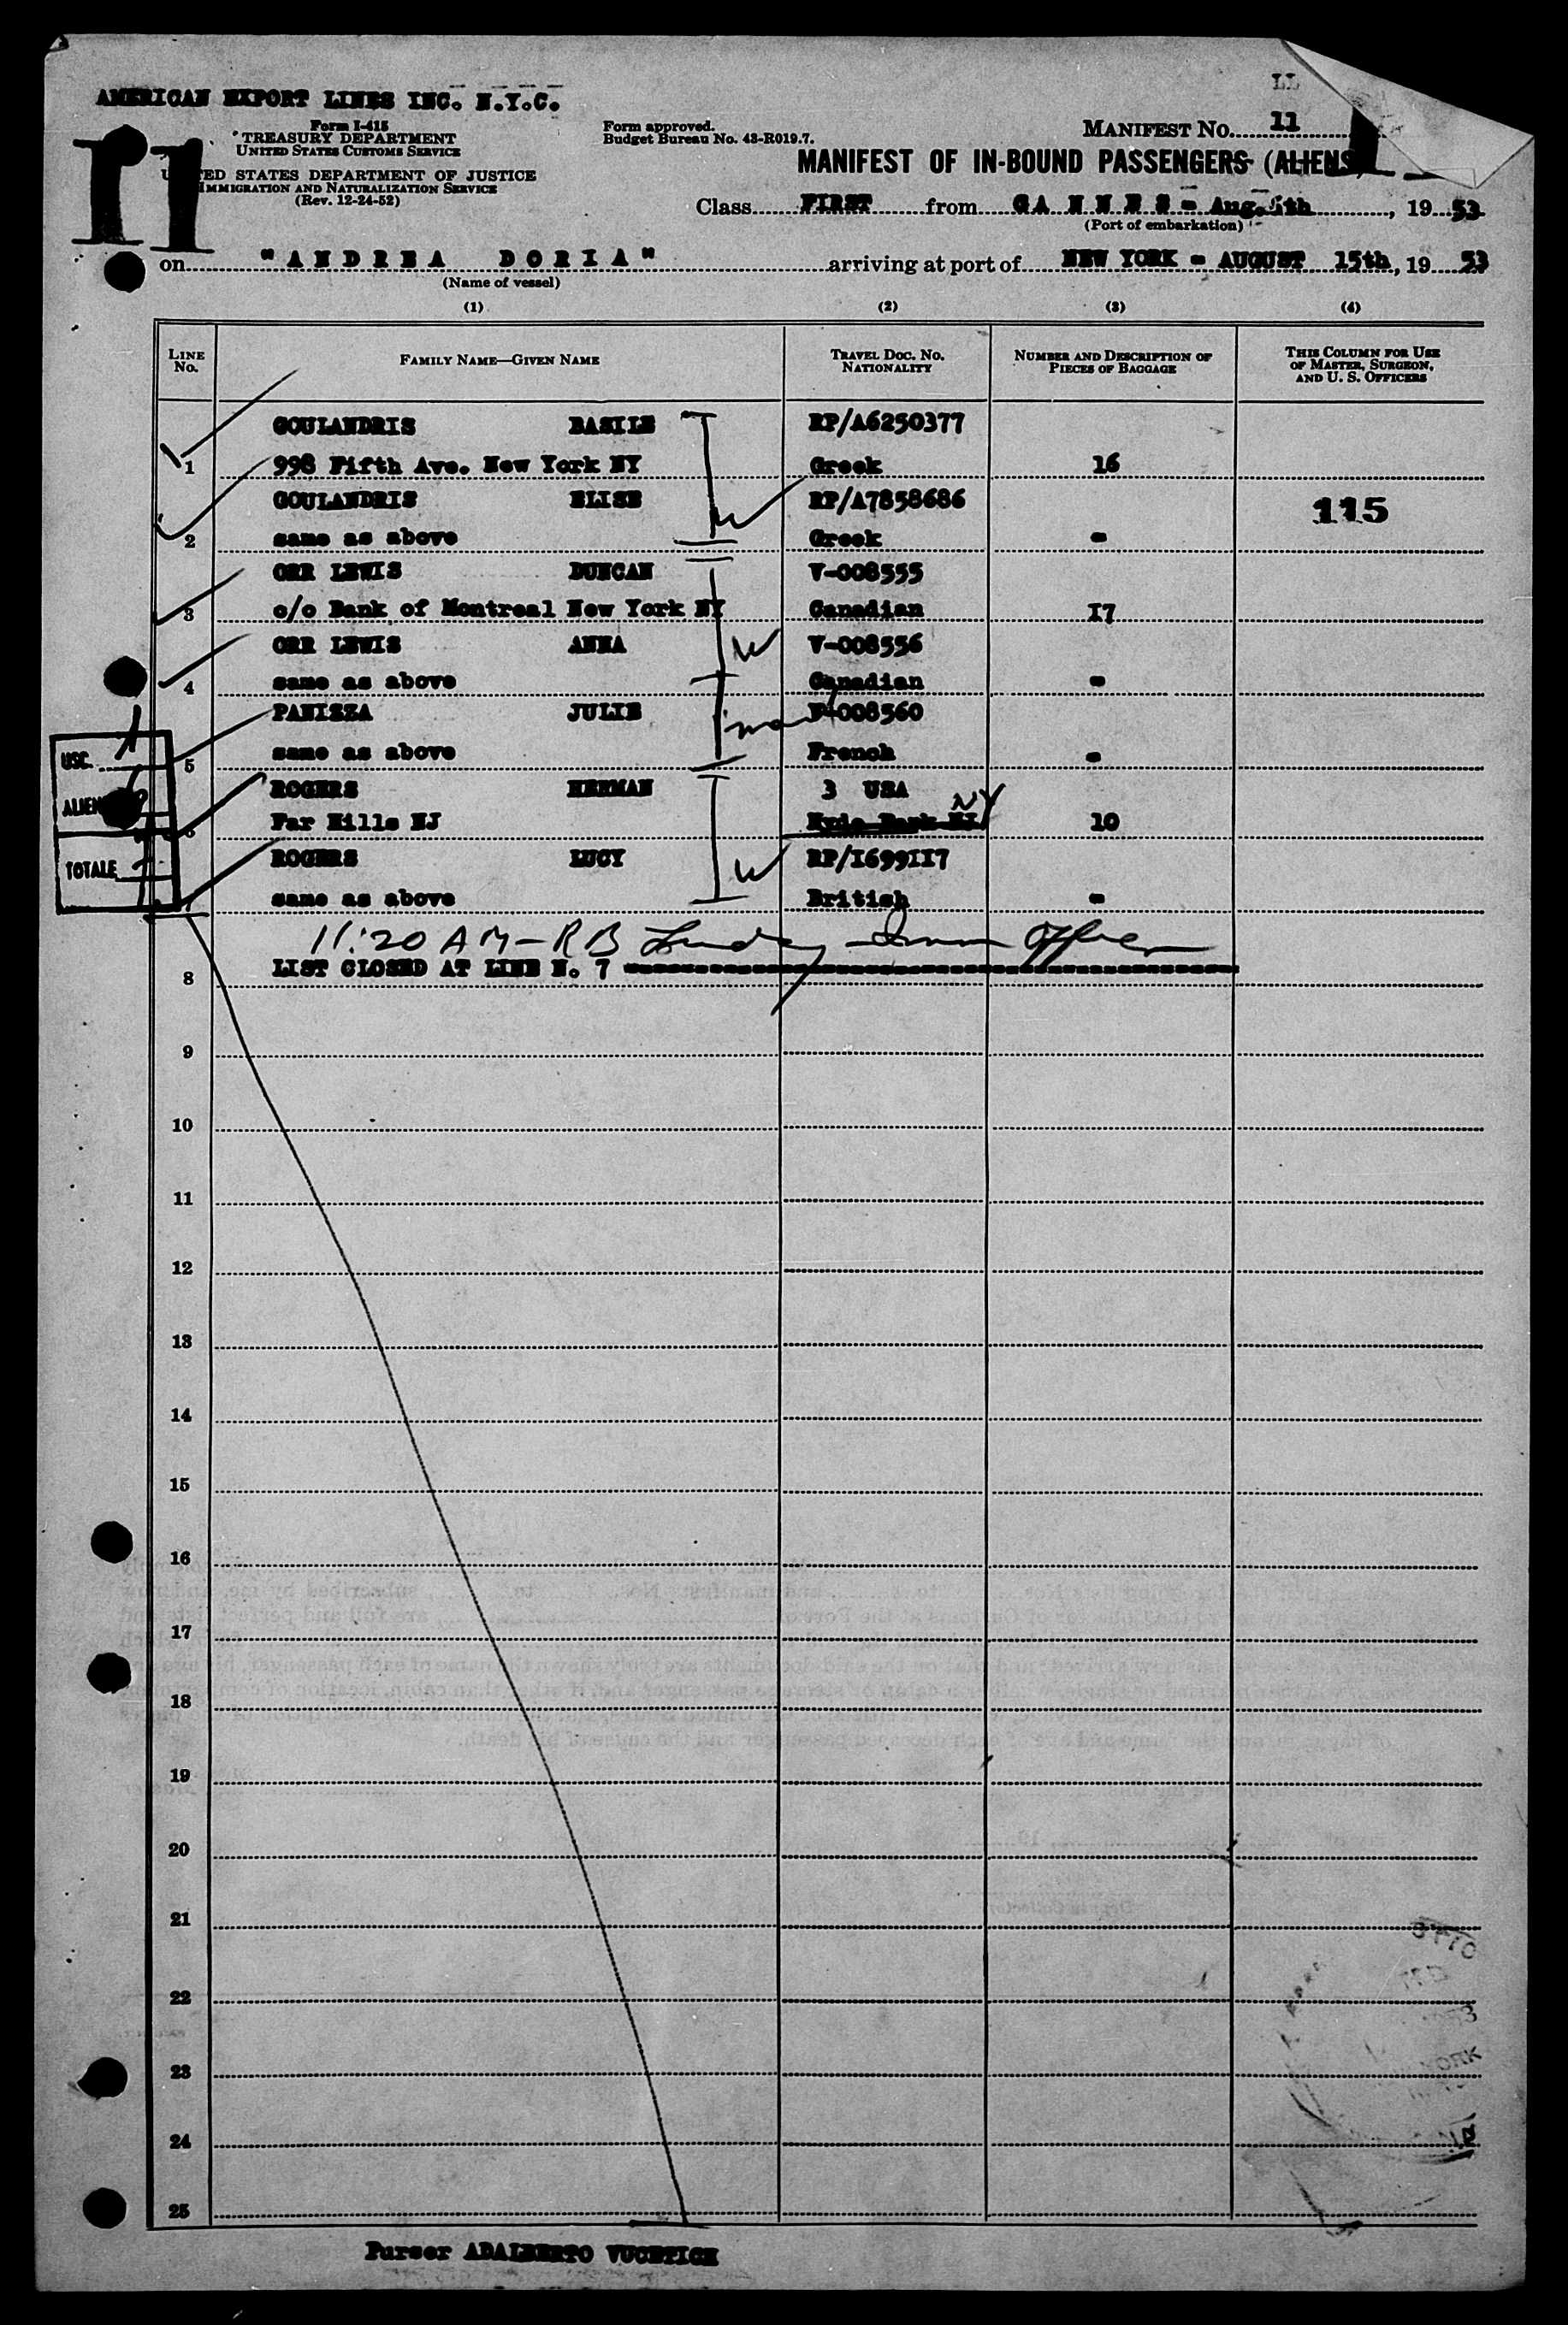 LL
AMERICAN EXPORT LINES INC. N.Y.C.
11
Form I-415
TREASURY DEPARTMENT
UNITED STATES CUSTOMS SERVICE
UNITED STATES DEPARTMENT OF JUSTICE
IMMIGRATION AND NATURALIZATION SERVICE
(Rev. 12-24-52)
Form approved.
Budget Bureau No. 43-R019.7.
MANIFEST NO. 11
MANIFEST OF IN-BOUND PASSENGERS (ALIENS)
Class FIRST from CANNES - Aug. , 19 53
(Port of embarkation)
on "ANDREA DORIA" arriving at port of NEW YORK - AUGUST 15th, 19 53
(Name of vessel)
(1) (2) (3) (4)
LINE NO. FAMILY NAME—GIVEN NAME TRAVEL DOC. NO. NATIONALITY NUMBER AND DESCRIPTION OF PIECES OF BAGGAGE THIS COLUMN FOR USE OF MASTER, SURGEON, AND U. S. OFFICERS
GOULANDRIS BASILE RP/A6250377
1 998 Fifth Ave. New York NY Greek 16
GOULANDRIS ELISE RP/A7858686 115
2 same as above Greek -
ORR LEWIS DUNCAN V-008555
3 c/o Bank of Montreal New York NY Canadian I7
ORR LEWIS ANNA V-008556
4 same as above Canadian -
PANIZZA JULIE V-008560
5 same as above French -
ROGERS HERMAN 3 USA
6 Far Hills NJ NY 10
ROGERS LUCY RP/I699II7
7 same as above British -
USC. 1
ALIEN
TOTALE 7
11:20 AM - RB Officer
LIST CLOSED AT LINE N. 7
8
9
10
11
12
13
14
15
16
17
18
19
20
21
22
23
24
25
Purser ADALBERTO VUCETICH